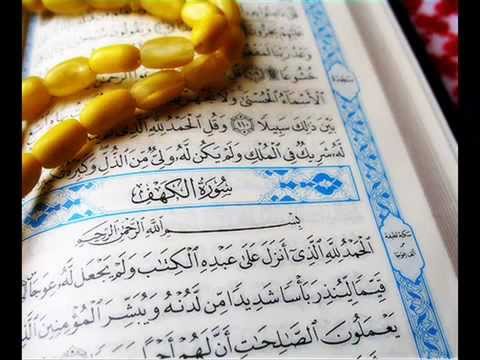 خُشُوعًا
الْأَسْمَاءُ الْحُسْنَىٰ وَلَا
بَيْنَ ذَٰلِكَ سَبِيلًا ١١٠ وَقُلِ الْحَمْدُ لِلَّهِ الَّذِي
لَّهُ شَرِيكٌ فِي الْمُلْكِ وَلَمْ يَكُن لَّهُ وَلِيٌّ مِّنَ الذُّلِّ وَكَبِّرْهُ
سُورَةُ الْكَهْفِ
بِسْمِ اللَّهِ الرَّحْمَٰنِ الرَّحِيمِ
الْحَمْدُ لِلَّهِ الَّذِي أَنزَلَ عَلَىٰ عَبْدِهِ الْكِتَابَ وَلَمْ يَجْعَل لَّهُ عِوَجًا
قَيِّمًا لِّيُنذِرَ بَأْسًا شَدِيدًا مِّن لَّدُنْهُ وَيُبَشِّرَ الْمُؤْمِنِينَ الَّذِ
يَعْمَلُونَ الصَّالِحَاتِ أَنَّ لَهُمْ أَجْرًا
سجدة
سكتة لطيفة